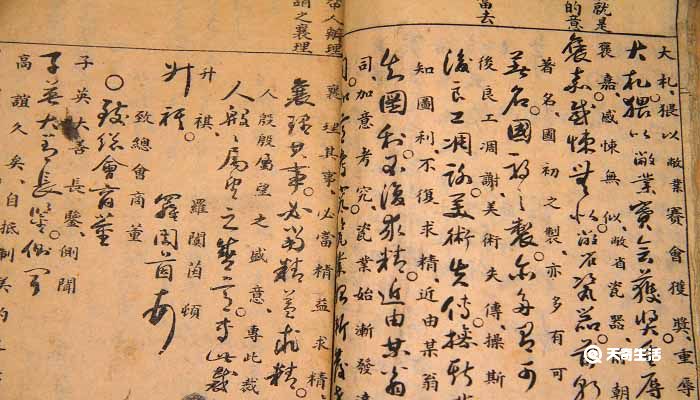 就是
的意
當去
大札猥以敝業賽會獲獎重辱
大札猥以敝業賽會獲獎重辱
褒嘉感悚無似敝省瓷器前朝
褒嘉感悚無似敝省瓷器前朝
著名國初之製亦多有可
著名國初之製亦多有可
後良工凋謝美術失傳操斯
後良工凋謝美術失傳操斯
知圖利不復求精近由某翁
知圖利不復求精近由某翁
司加意考究瓷業始漸發達
帝人辦理
謂之襄理
襄理其事必當精益求精
襄理其事必當精益求精
人殷殷屬望之盛意專此裁
人殷殷屬望之盛意專此裁
升祺 羅闓茵頓
升祺 羅闓茵頓
致總會商董
致總會商董
子英大善長鑒側聞
子英大善長鑒側聞
高誼久矣自抵制美約
天奇生活